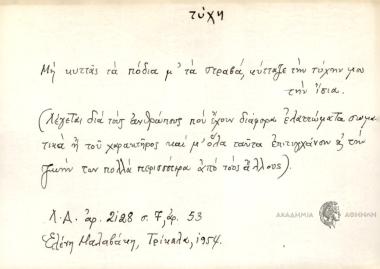 τύχη
Μή κυττᾷς τὰ πόδια μ' τὰ στραβά, κύτταξε τὴν τύχην μου
τὴν ἴσια.
(Λέγεται διὰ τοὺς ἀνθρώπους ποὺ ἔχουν διάφορα ἐλαττώματα σωμα-
τικὰ ἢ τοῦ χαρακτῆρος καὶ μ' ὅλα ταῦτα ἐπιτυγχάνουν εἰς τὴν
ζωὴν των πολλὰ περισσότερα ἀπὸ τοὺς ἄλλους).
Λ.Α. ἀρ. 2128 σ. 7, ἀρ. 53
Ἑλένη Μαλαβάκη, Τρίκαλα, 1954.
ΑΚΑΔΗΜΙΑ ΑΘΗΝΩΝ